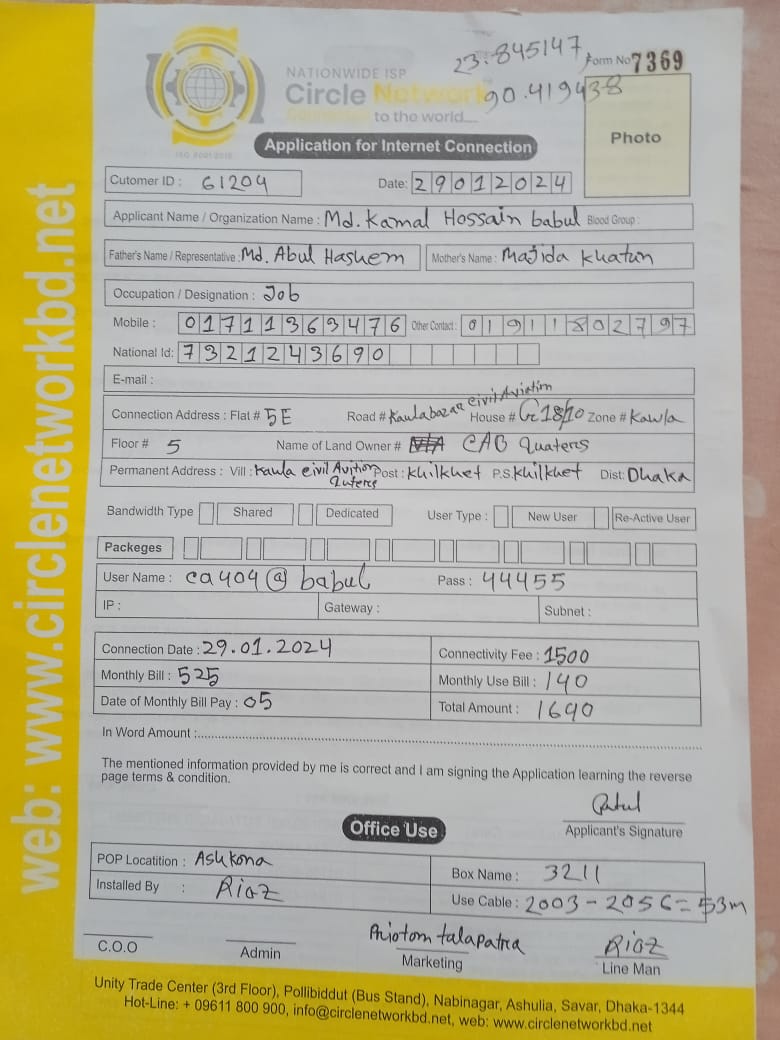 23.845147,
90.419438
Form No 7369
NATIONWIDE ISP
Circle Network
Connected to the world....
ISO 9001:2015
Photo
Application for Internet Connection
Cutomer ID : 61204 Date: 29012024
Applicant Name / Organization Name : Md. Kamal Hossain babul Blood Group :
Father's Name / Representative : Md. Abul Hashem Mother's Name : Majida Khatun
Occupation / Designation : Job
Mobile : 01711363476 Other Contact : 01911802797
National Id: 7321243690
E-mail :
Connection Address : Flat # 5E Road # Kaulabazar civil Aviation House # G 18/10 Zone # Kawla
Floor # 5 Name of Land Owner # N/A CAO Quaters
Permanent Address : Vill : Kaula civil Avition Quters Post : Khilkhet P.S. Khilkhet Dist: Dhaka
Bandwidth Type Shared Dedicated User Type : New User Re-Active User
Packeges
User Name : ca404@babul Pass : 44455
IP : Gateway : Subnet :
Connection Date : 29.01.2024 Connectivity Fee : 1500
Monthly Bill : 525 Monthly Use Bill : 140
Date of Monthly Bill Pay : 05 Total Amount : 1640
In Word Amount :
The mentioned information provided by me is correct and I am signing the Application learning the reverse
page terms & condition.
Applicant's Signature
Office Use
POP Locatition : Ashkona Box Name : 3211
Installed By : Riaz Use Cable : 2003 - 2056 = 53m
Priotom talapatra Riaz
C.O.O Admin Marketing Line Man
Unity Trade Center (3rd Floor), Pollibiddut (Bus Stand), Nabinagar, Ashulia, Savar, Dhaka-1344
Hot-Line: + 09611 800 900, info@circlenetworkbd.net, web: www.circlenetworkbd.net
web: www.circlenetworkbd.net